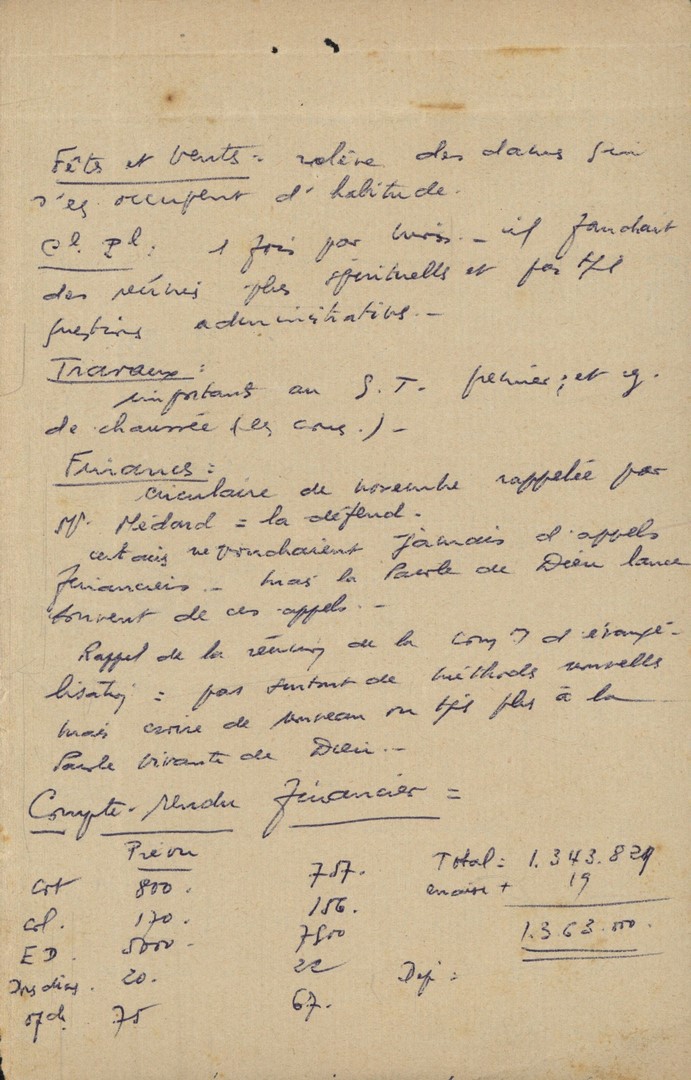 Fêtes et Vents = relève des dames qui
s'es occupent d'habitude.
Cl. Pl : 1 fois par mois. _ il faudrait
des réunions plus spirituelles et pas tjs
questions administratives. _
Travaux :
important au S.T. premier ; et
de chaussée (les cons.) _
Finances =
circulaire de novembre rappelée par
Mr. Médard = la défend.
certains ne voudraient jamais d'appels
financiers _ mais la Parole de Dieu lance
souvent de ces appels. _
Rappel de la réunion de la Com d'évangé-
lisation = pas surtout de méthodes nouvelles
mais croire de nouveau ou tjs plus à la
Parole vivante de Dieu. _
Compte-rendu financier =
Prévu
Cot 800. 757. Total = 1.343.829
Col. 170. 156. 19
ED. 5000. 7500 1.363.000.
20. 22 Dep =
75 67.